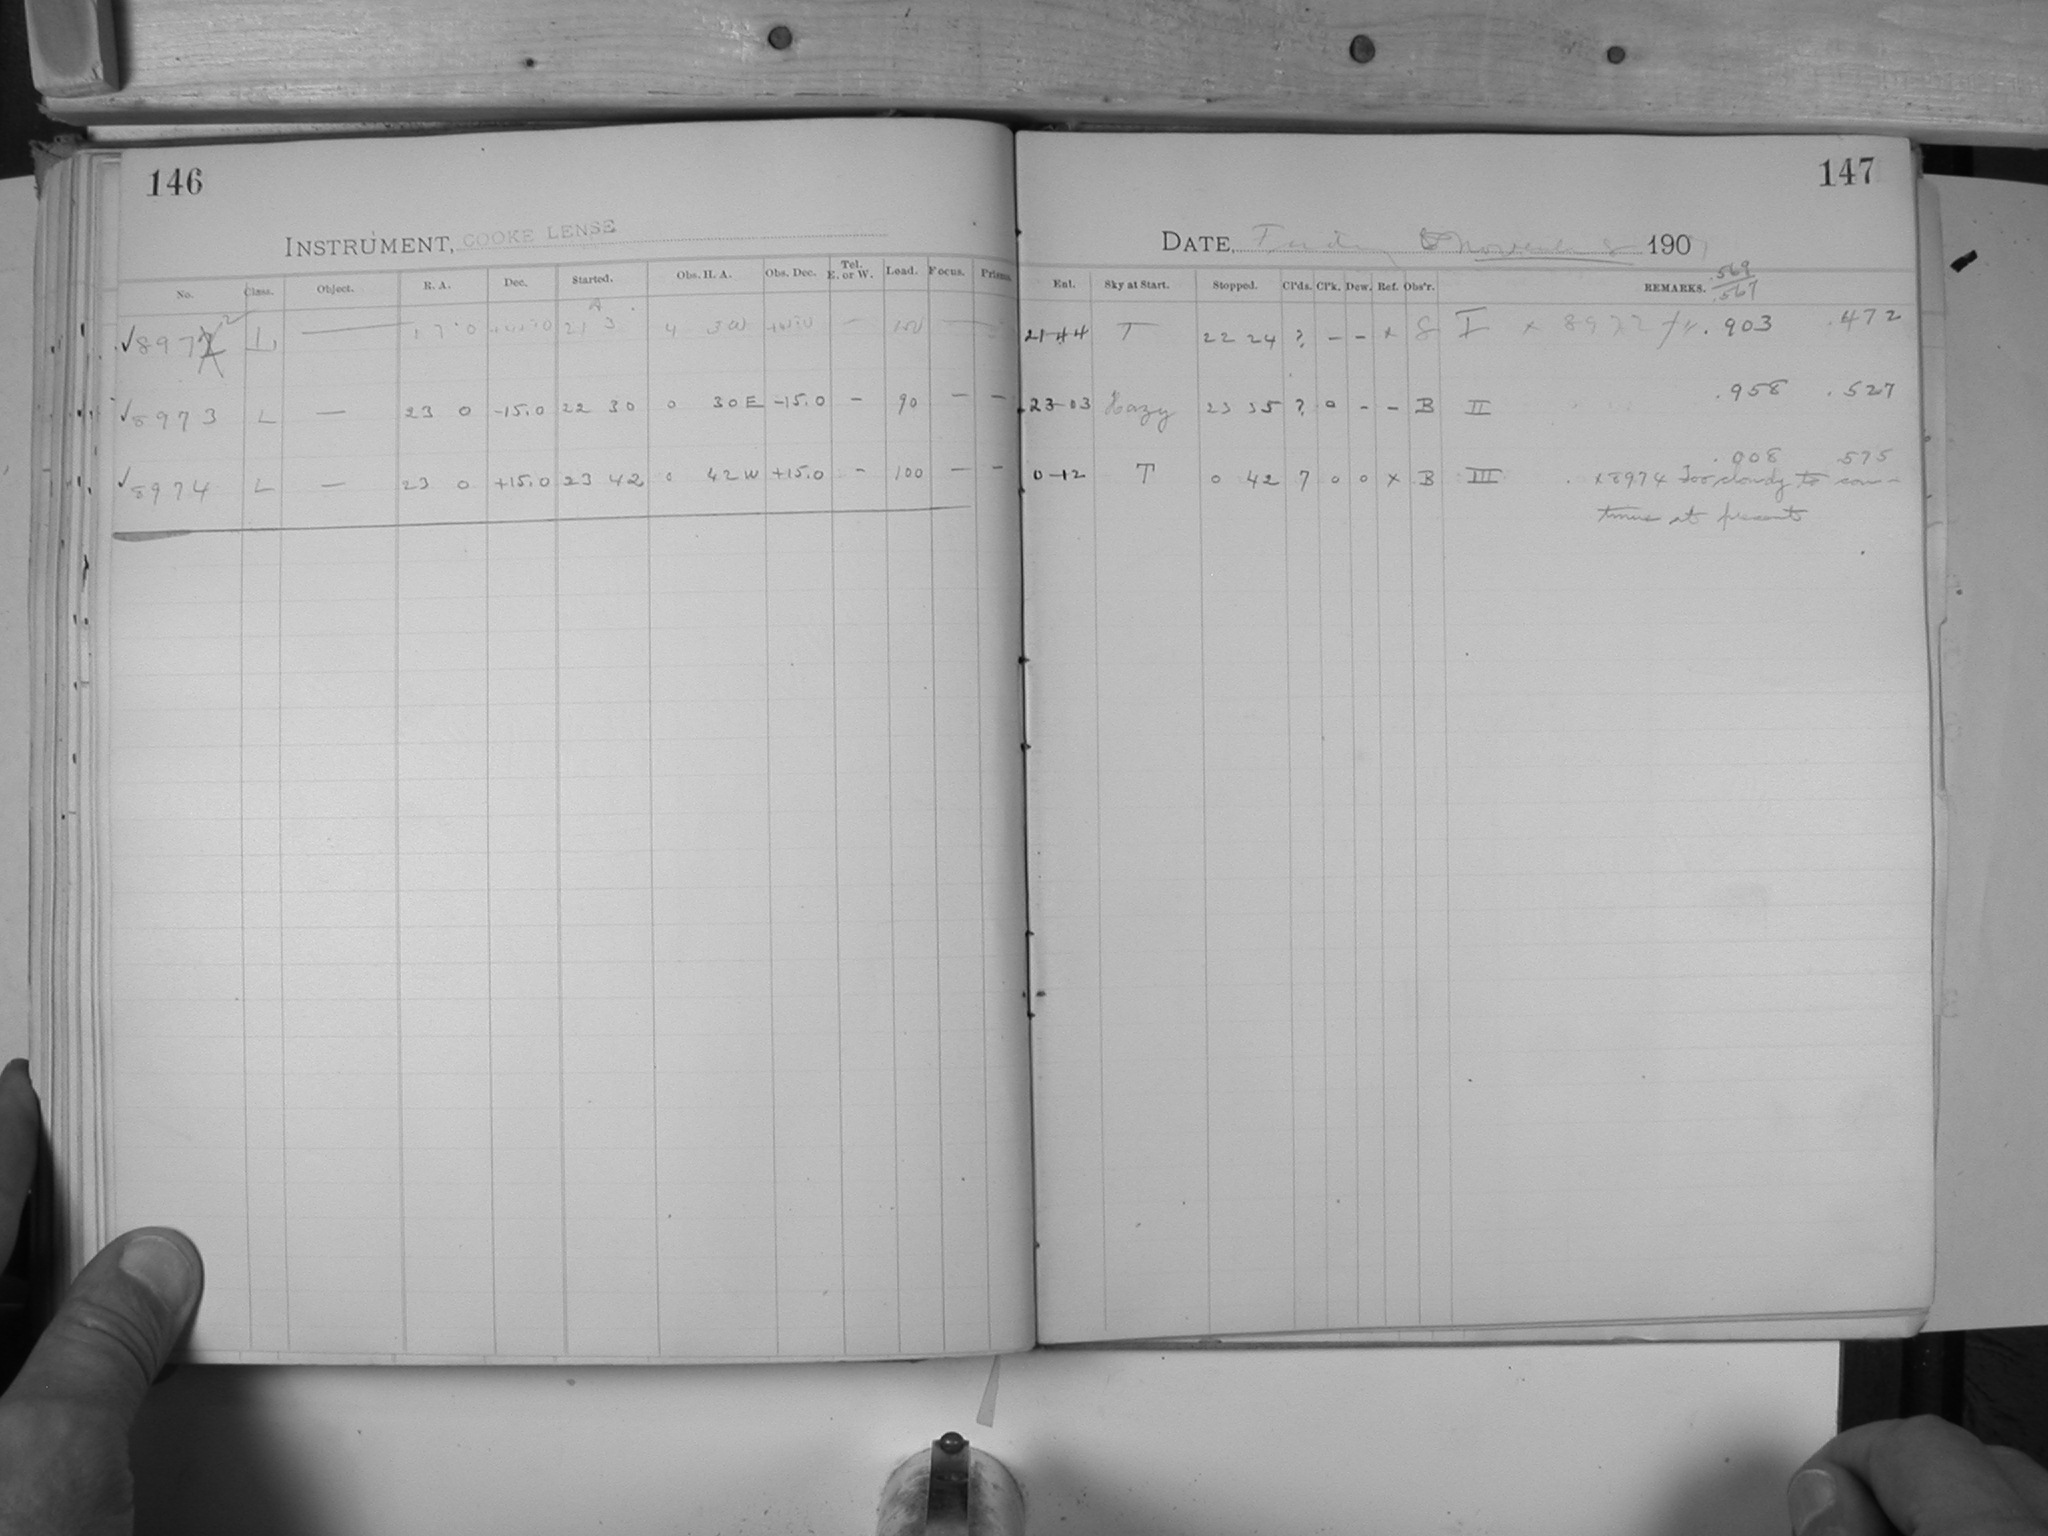 146
INSTRUMENT, COOKE LENSE
No. Class. Object. R. A. Dec. Started. Obs. H. A. Obs. Dec. Tel. E. or W. Load. Focus. Prisms.
√ 897 2 L — 17 0 21 3 4 3W — —
√ 8973 L — 23 0 -15.0 22 30 0 30E -15.0 - 90 — —
√ 8974 L — 23 0 +15.0 23 42 0 42W +15.0 - 100 — —
147
DATE, November 8 190
.569
.567
Enl. Sky at Start. Stopped. Cl'ds. Cl'k. Dew. Ref. Obs'r. REMARKS.
21-44 T 22 24 ? - - x I x 8972 .903 .472
.958 .527
23-03 Hazy 23 35 ? 0 - - B II
.008 .575
0-12 T 0 42 7 0 0 x B III x 8974 Too cloudy to con-
tinue at present